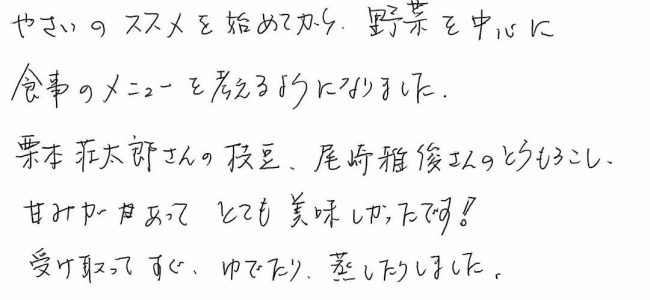 やさいのススメを始めてから、野菜を中心に
食事のメニューを考えるようになりました.
栗本荘太郎さんの枝豆、尾崎雅俊さんのとうもろこし、
甘みがあって とても美味しかったです!
受け取ってすぐ、ゆでたり、蒸したりしました。